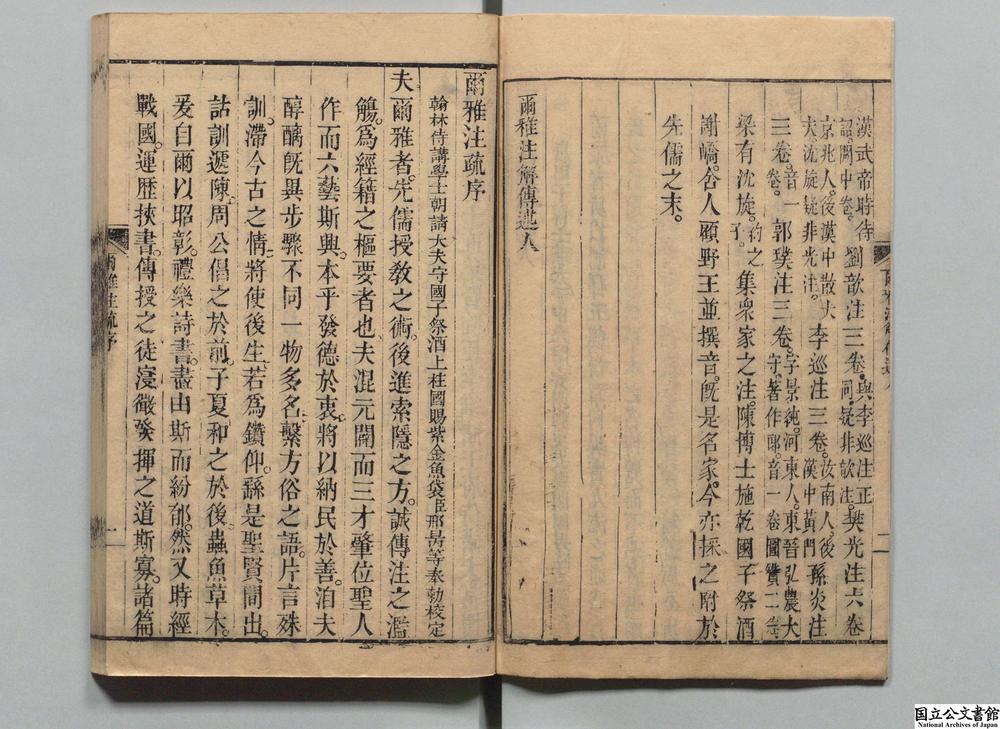 漢武帝時待詔闕中卷。劉歆注三卷。與李巡注正同。疑非歆注。樊光注六卷
京兆人。後漢中散大夫。沈旋疑非光注。李巡注三卷。汝南人。後漢中黃門孫炎注
三卷。音一卷。郭璞注三卷。字景純。河東人。東晉弘農大守。著作郎。音一卷圖贊二卷
梁有沈旋。約之子。集衆家之注。陳博士施乾國子祭酒
謝嶠。舍人顧野王並撰音。旣是名家。今亦採之附於
先儒之末。
爾雅注解傳述人
爾雅注疏序
翰林侍講學士朝請大夫守國子祭酒上柱國賜紫金魚袋臣邢昺等奉勅校定
夫爾雅者。先儒授教之術。後進索隱之方。誠傳注之濫
觴。爲經籍之樞要者也。夫混元闢而三才肇位聖人
作而六藝斯興。本乎發德於衷。將以納民於善。洎夫
醇醨旣異步驟不同一物多名。繫方俗之語。片言殊
訓。滯今古之情。將使後生。若爲鑽仰。繇是聖賢間出。
詁訓遞陳。周公倡之於前。子夏和之於後。蟲魚草木。
爰自爾以昭彰。禮樂詩書。盡由斯而紛郁。然又時經
戰國。運歷挾書。傳授之徒。寖微發揮之道斯寡。諸篇
爾雅注疏序
一
国立公文書館
National Archives of Japan